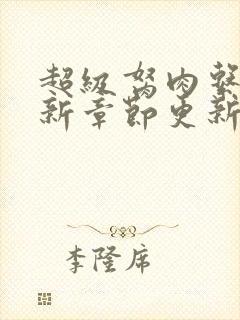 超級肉
新章節更新
李隆席